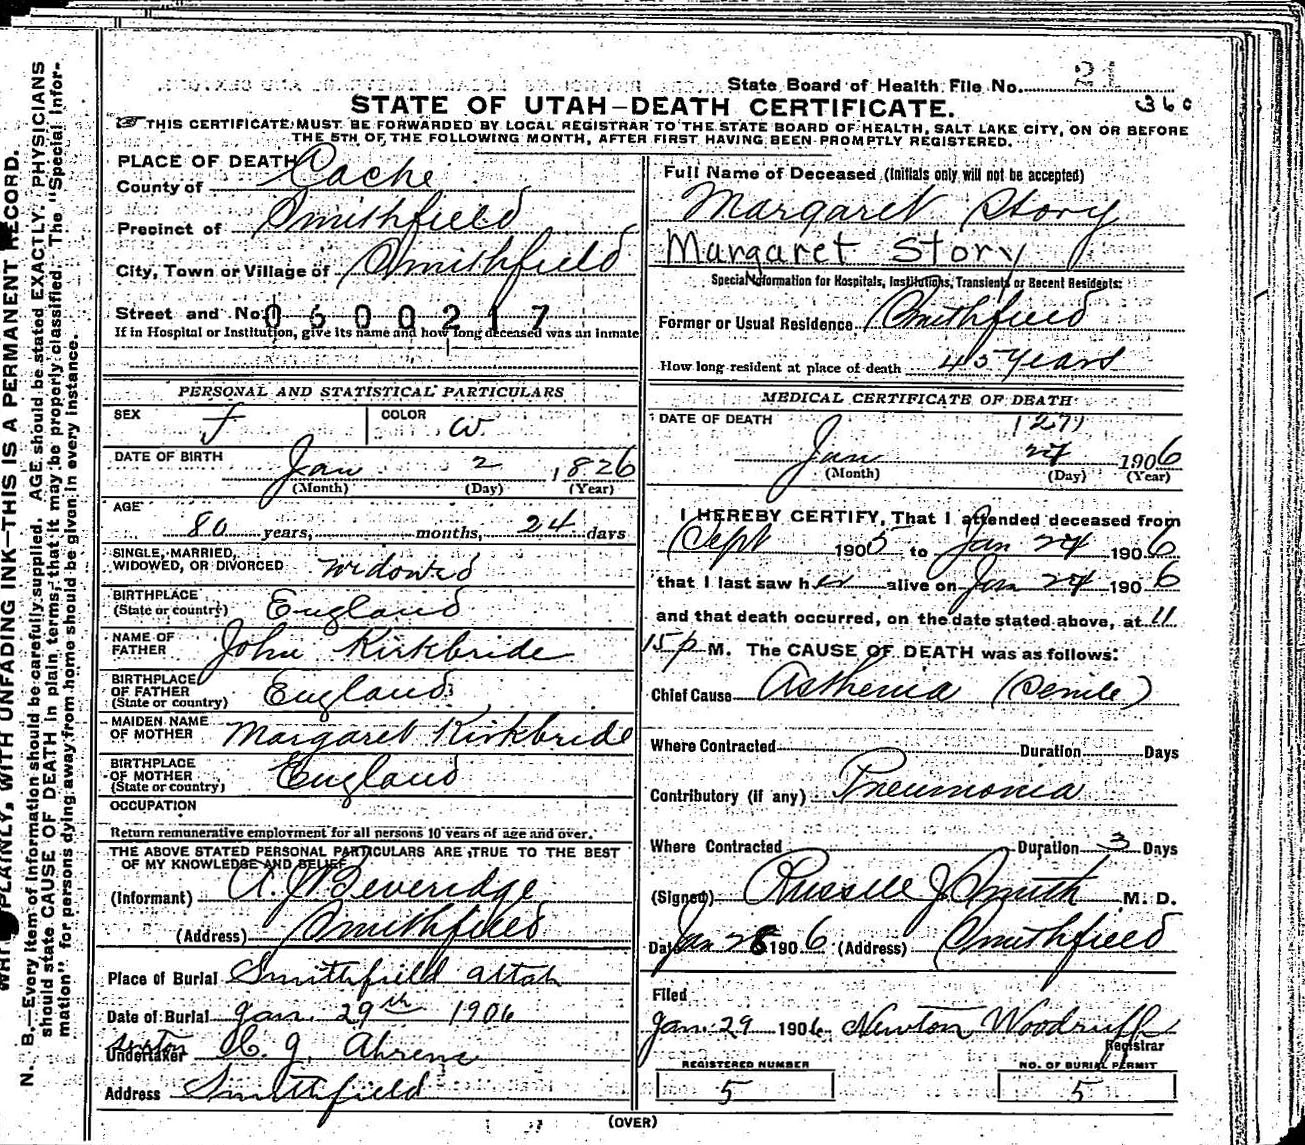 State Board of Health File No. 21
STATE OF UTAH—DEATH CERTIFICATE. 360
THIS CERTIFICATE MUST BE FORWARDED BY LOCAL REGISTRAR TO THE STATE BOARD OF HEALTH, SALT LAKE CITY, ON OR BEFORE
THE 5TH OF THE FOLLOWING MONTH, AFTER FIRST HAVING BEEN PROMPTLY REGISTERED.
PLACE OF DEATH
County of Cache
Precinct of Smithfield
City, Town or Village of Smithfield
Street and No. 0600217
If in Hospital or Institution, give its name and how long deceased was an inmate
PERSONAL AND STATISTICAL PARTICULARS
SEX F COLOR W
DATE OF BIRTH
Jan 2 1826
(Month) (Day) (Year)
AGE
80 years, months, 24 days
SINGLE, MARRIED,
WIDOWED, OR DIVORCED Widowed
BIRTHPLACE
(State or country) England
NAME OF
FATHER John Kirkbride
BIRTHPLACE
OF FATHER
(State or country) England
MAIDEN NAME
OF MOTHER Margaret Kirkbride
BIRTHPLACE
OF MOTHER
(State or country) England
OCCUPATION
Return remunerative employment for all persons 10 years of age and over.
THE ABOVE STATED PERSONAL PARTICULARS ARE TRUE TO THE BEST
OF MY KNOWLEDGE AND BELIEF
(Informant) A. J. Beveridge
(Address) Smithfield
Place of Burial Smithfield Utah
Date of Burial Jan. 29th 1906
Sexton
Undertaker C. J. Ahrens
Address Smithfield
Full Name of Deceased (Initials only will not be accepted)
Margaret Story
Margaret Story
Special Information for Hospitals, Institutions, Transients or Recent Residents:
Former or Usual Residence Smithfield
How long resident at place of death 45 years
MEDICAL CERTIFICATE OF DEATH
DATE OF DEATH (27)
Jan 27 1906
(Month) (Day) (Year)
I HEREBY CERTIFY, That I attended deceased from
Sept 1905 to Jan 27 1906
that I last saw her alive on Jan 27 1906
and that death occurred, on the date stated above, at 11
15 p M. The CAUSE OF DEATH was as follows:
Chief Cause Asthenia (Senile)
Where Contracted Duration Days
Contributory (if any) Pneumonia
Where Contracted Duration 3 Days
(Signed) Russell J Smith M. D.
Date Jan 28 1906 (Address) Smithfield
Filed
Jan. 29 1906 Newton Woodruff
Registrar
REGISTERED NUMBER NO. OF BURIAL PERMIT
5 5
(OVER)
PLAINLY, WITH UNFADING INK—THIS IS A PERMANENT RECORD.
N. B.—Every item of information should be carefully supplied. AGE should be stated EXACTLY. PHYSICIANS
should state CAUSE OF DEATH in plain terms, that it may be properly classified. The "Special Infor-
mation" for persons dying away from home should be given in every instance.